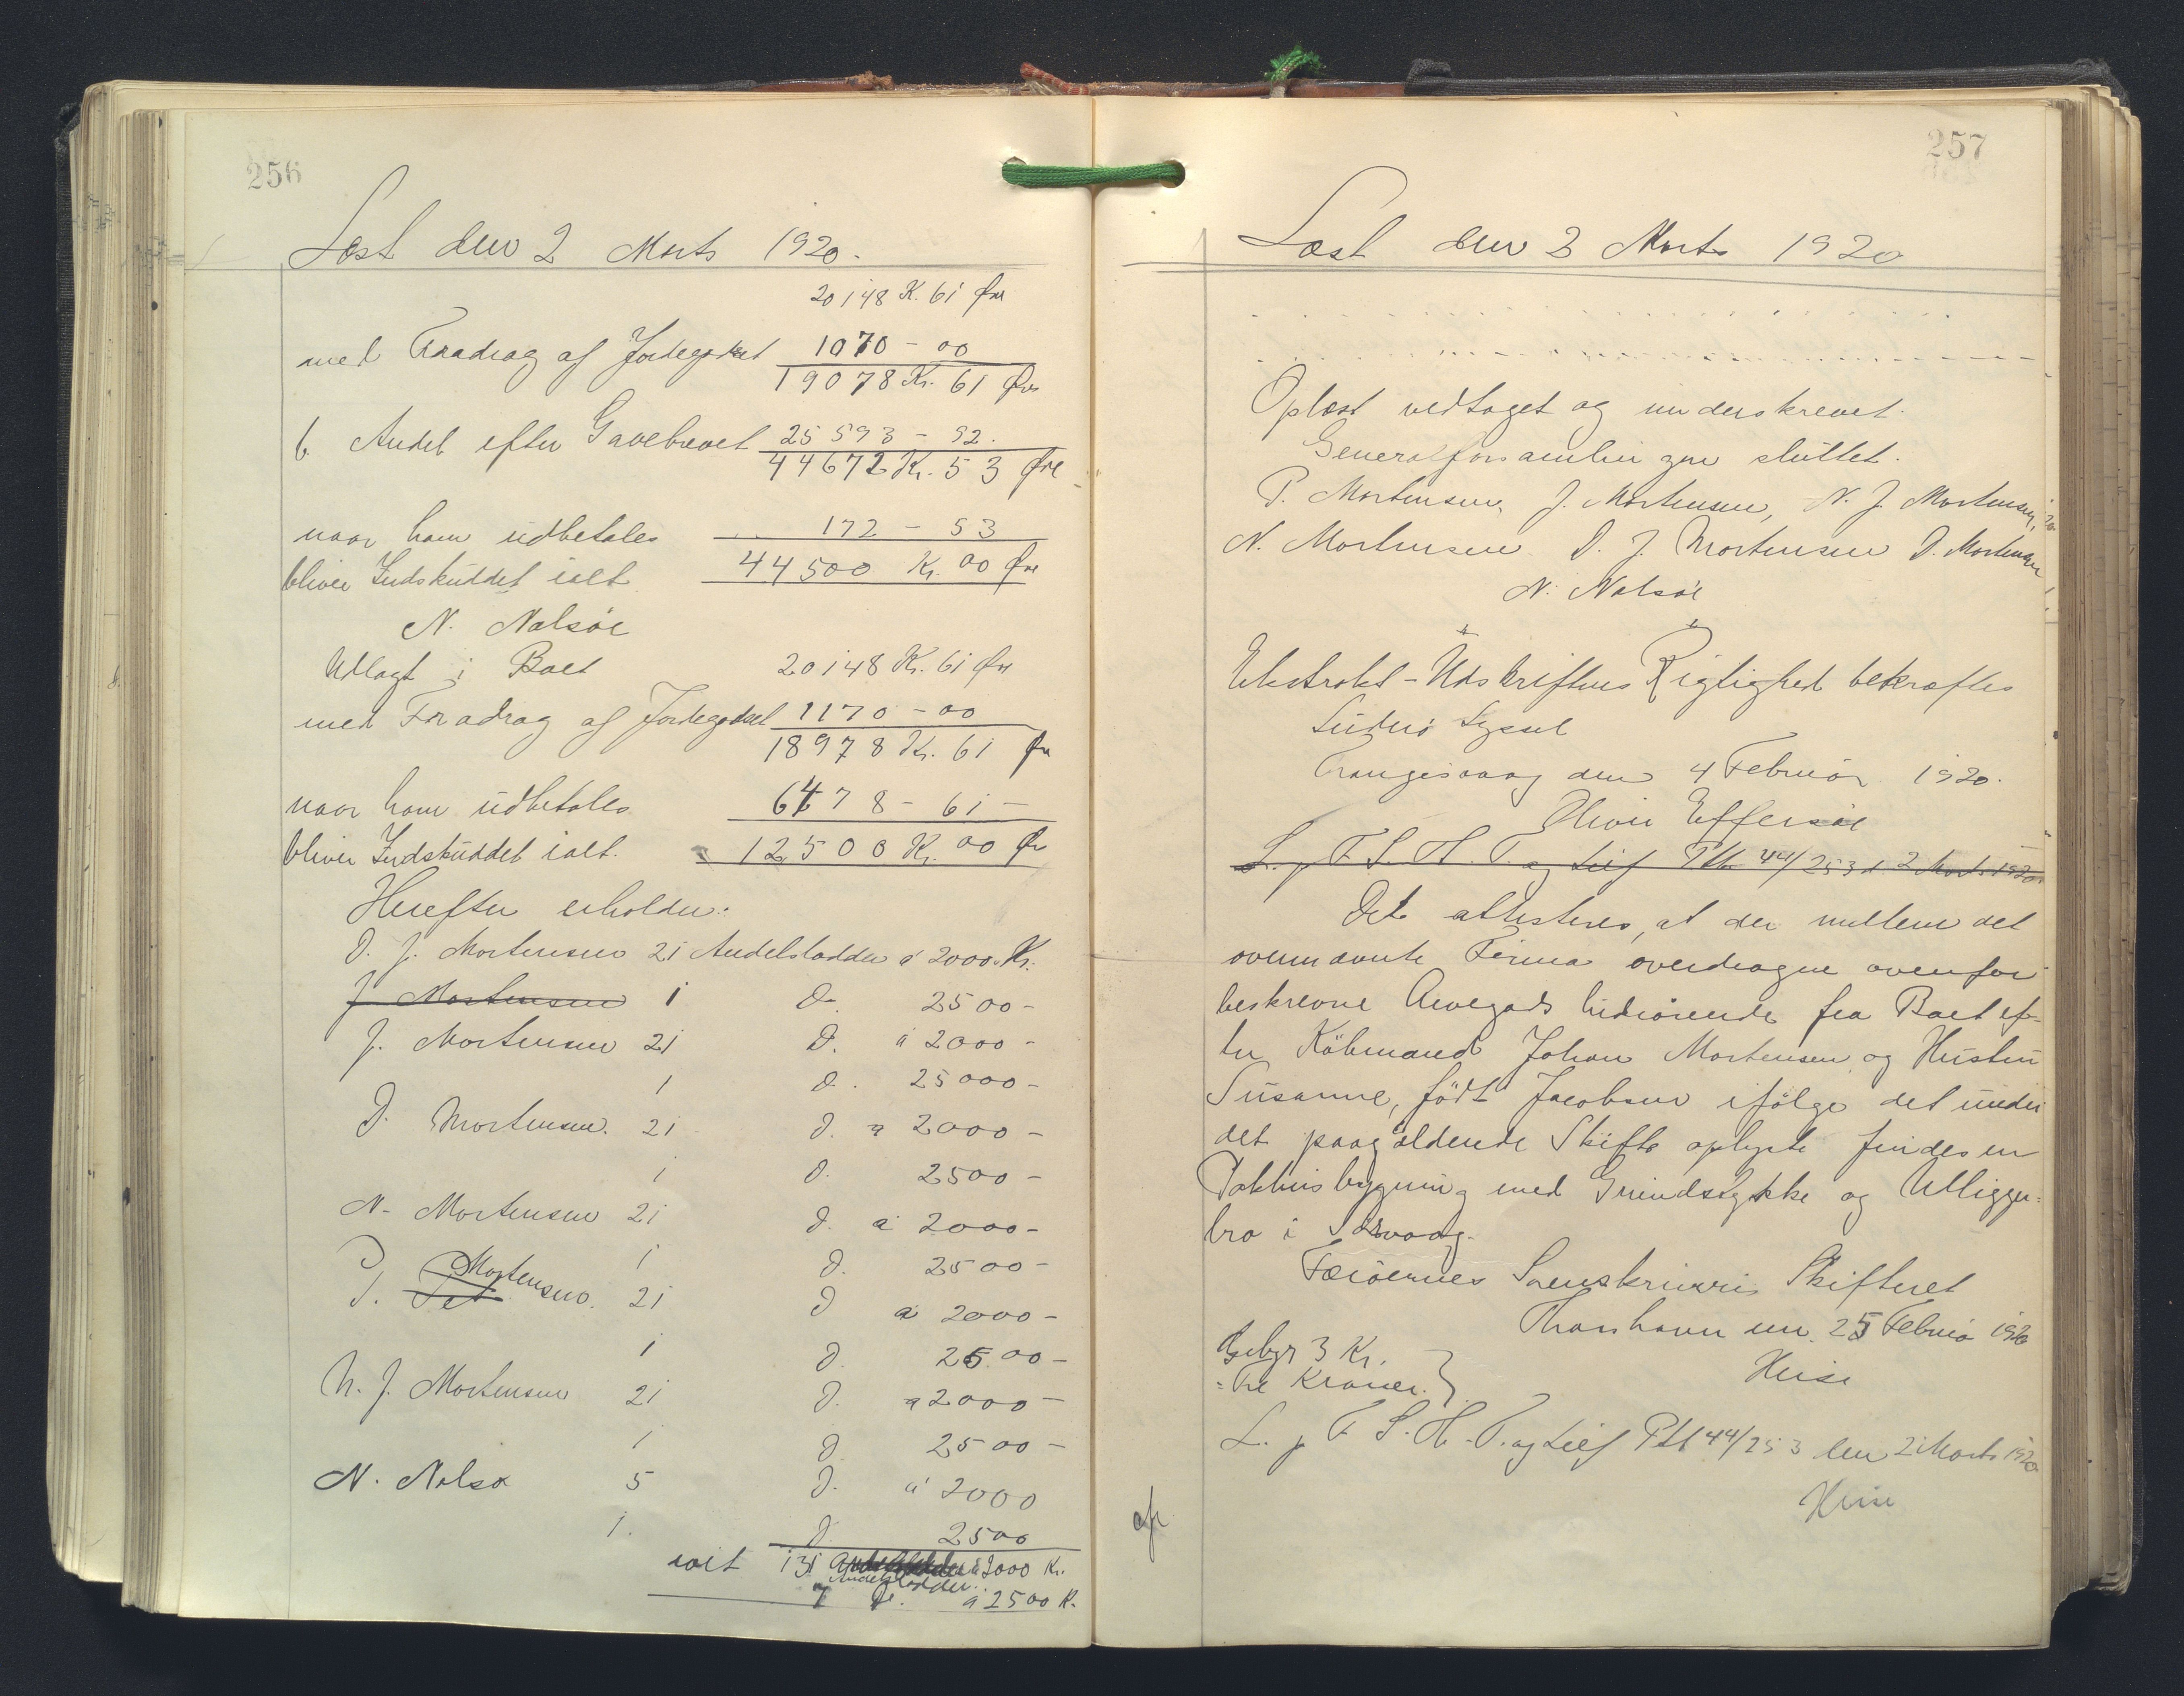 256
Læst den 2 Marts 1920.
20148 K. 61 Øre
med Fradrag af Jordegodset 1070 - 00
19078 Kr. 61 Øre
b. Andel efter Gavebrevet 25593 - 92.
44672 Kr. 53 Øre
naar ham udbetales 172 - 53
bliver Indskuddet ialt 44500 Kr. 00 Øre
N. Nolsøe
Udlagt i Boet 20148 Kr. 61 Øre
med Fradrag af Jordegodset 1170 - 00
18978 Kr. 61 Øre
naar ham udbetales 6478 - 61 -
bliver Indskuddet ialt. 12500 Kr. 00 Øre
Herefter erholder:
D. J. Mortensen 21 Andelslodder á 2000 Kr.
J. Mortensen 1 D. 2500 -
J. Mortensen 21 D. á 2000 -
1 D. 25000 -
D. Mortensen. 21 D. á 2000 -
1 D. 2500 -
N. Mortensen 21 D. á 2000 -
1 D. 2500 -
P. Mortensen. 21 D á 2000 -
1 D. 2500 -
N. J. Mortensen 21 D. á 2000 -
1 D. 2500 -
N. Nolsø 5 D. á 2000
1. D 2500
ialt 131 Andelslodder á 2000 Kr.
Andelslodder
7 D. á 2500 K.
257
Læst den 2 Marts 1920
Oplæst vedtaget og underskrevet.
Generalforsamlingen sluttet.
P. Mortensen, J. Mortensen, N. J. Mortensen,
N. Mortensen D. J. Mortensen D. Mortensen
N. Nolsøe
Ekstrakt-Udskriftens Rigtighed bekræftes
Suderø Syssel
Trangisvaag den 4 Februar 1920.
Oliver Effersøe
L. p F. S. H. T. og Leif Ptk 44/253 d. 2 Marts 1920
Det attesteres, at der mellem det
ovennævnte Firma overdragne ovenfor
beskrevne Arvegods hidrørende fra Boet ef-
ter Købmand Johan Mortensen og Hustru
Susanne, født Jacobsen ifølge det under
det paagældende Skifte oplyste findes en
Pakhusbygning med Grundstykke og Ulligger-
bro i Sørvaag.
Færøernes Sorenskriveri, Skifteret
Thorshavn den 25 Februar 1920
Gebyr 3 Kr.
= Tre Kroner. }
Heise
L. p F. S. H. T. og Leif Ptk 44/253 den 2 Marts 1920
Heise
afr